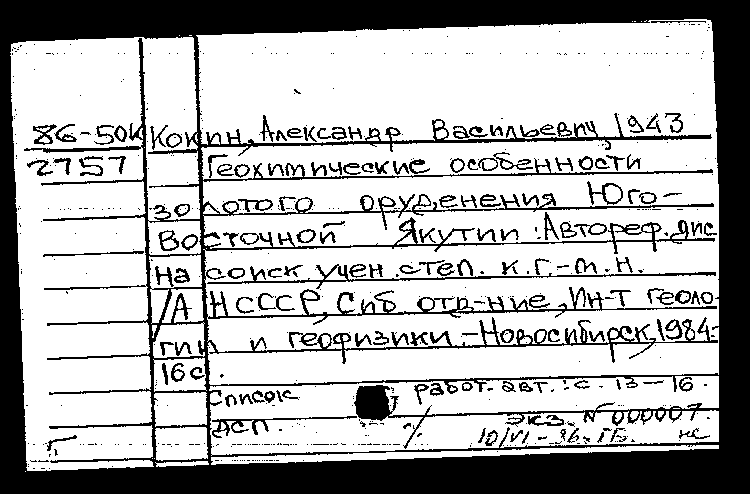 86-50к Кокин, Александр Васильевич, 1943
2757 Геохимические особенности
золотого оруденения Юго-
Восточной Якутии: Автореф. дис
на соиск. учен. степ. к.г.-м.н.
/АН СССР, Сиб. отд-ние, Ин-т геоло-
гии и геофизики. - Новосибирск, 1984.-
16 с.
Список работ. авт.: с. 13-16.
ДСП. Экз. № 000007.
10/VI-86. ГБ. нс